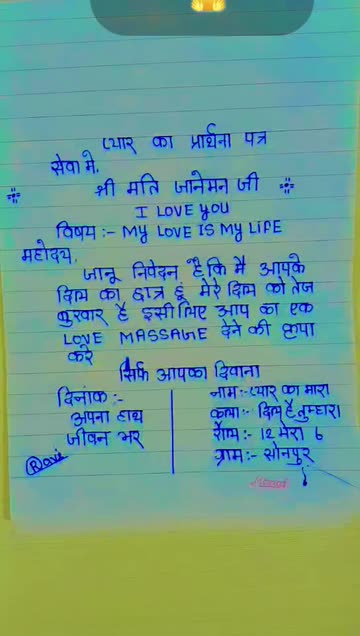 प्यार का प्रार्थना पत्र
सेवा मे,
श्री मति जानेमन जी
I LOVE YOU
विषय :- MY LOVE IS MY LIFE
महोदय,
जानू निवेदन है कि मै आपके
दिल का छात्र हूं मेरे दिल को तेज
बुरवार है इसी लिए आप का एक
LOVE MASSAGE देने की कृपा
करे
सिर्फ आपका दिवाना
दिनांक :-
अपना हाथ
जीवन भर
नाम :- प्यार का मारा
कक्षा :- दिल है तुम्हारा
रोल :- 12 मेरा 6
ग्राम :- सोनपुर